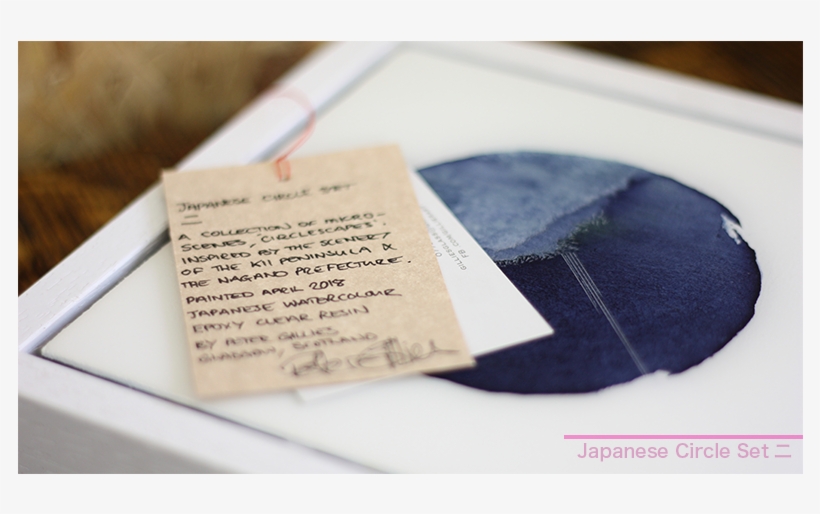 JAPANESE CIRCLE SET
二
A COLLECTION OF MICRO-
SCENES, "CIRCLESCAPES".
INSPIRED BY THE SCENERY
OF THE KII PENINSULA &
THE NAGANO PREFECTURE.
PAINTED APRIL 2018
JAPANESE WATERCOLOUR
EPOXY CLEAR RESIN
BY PETER GILLIES
GLASGOW, SCOTLAND
Japanese Circle Set 二